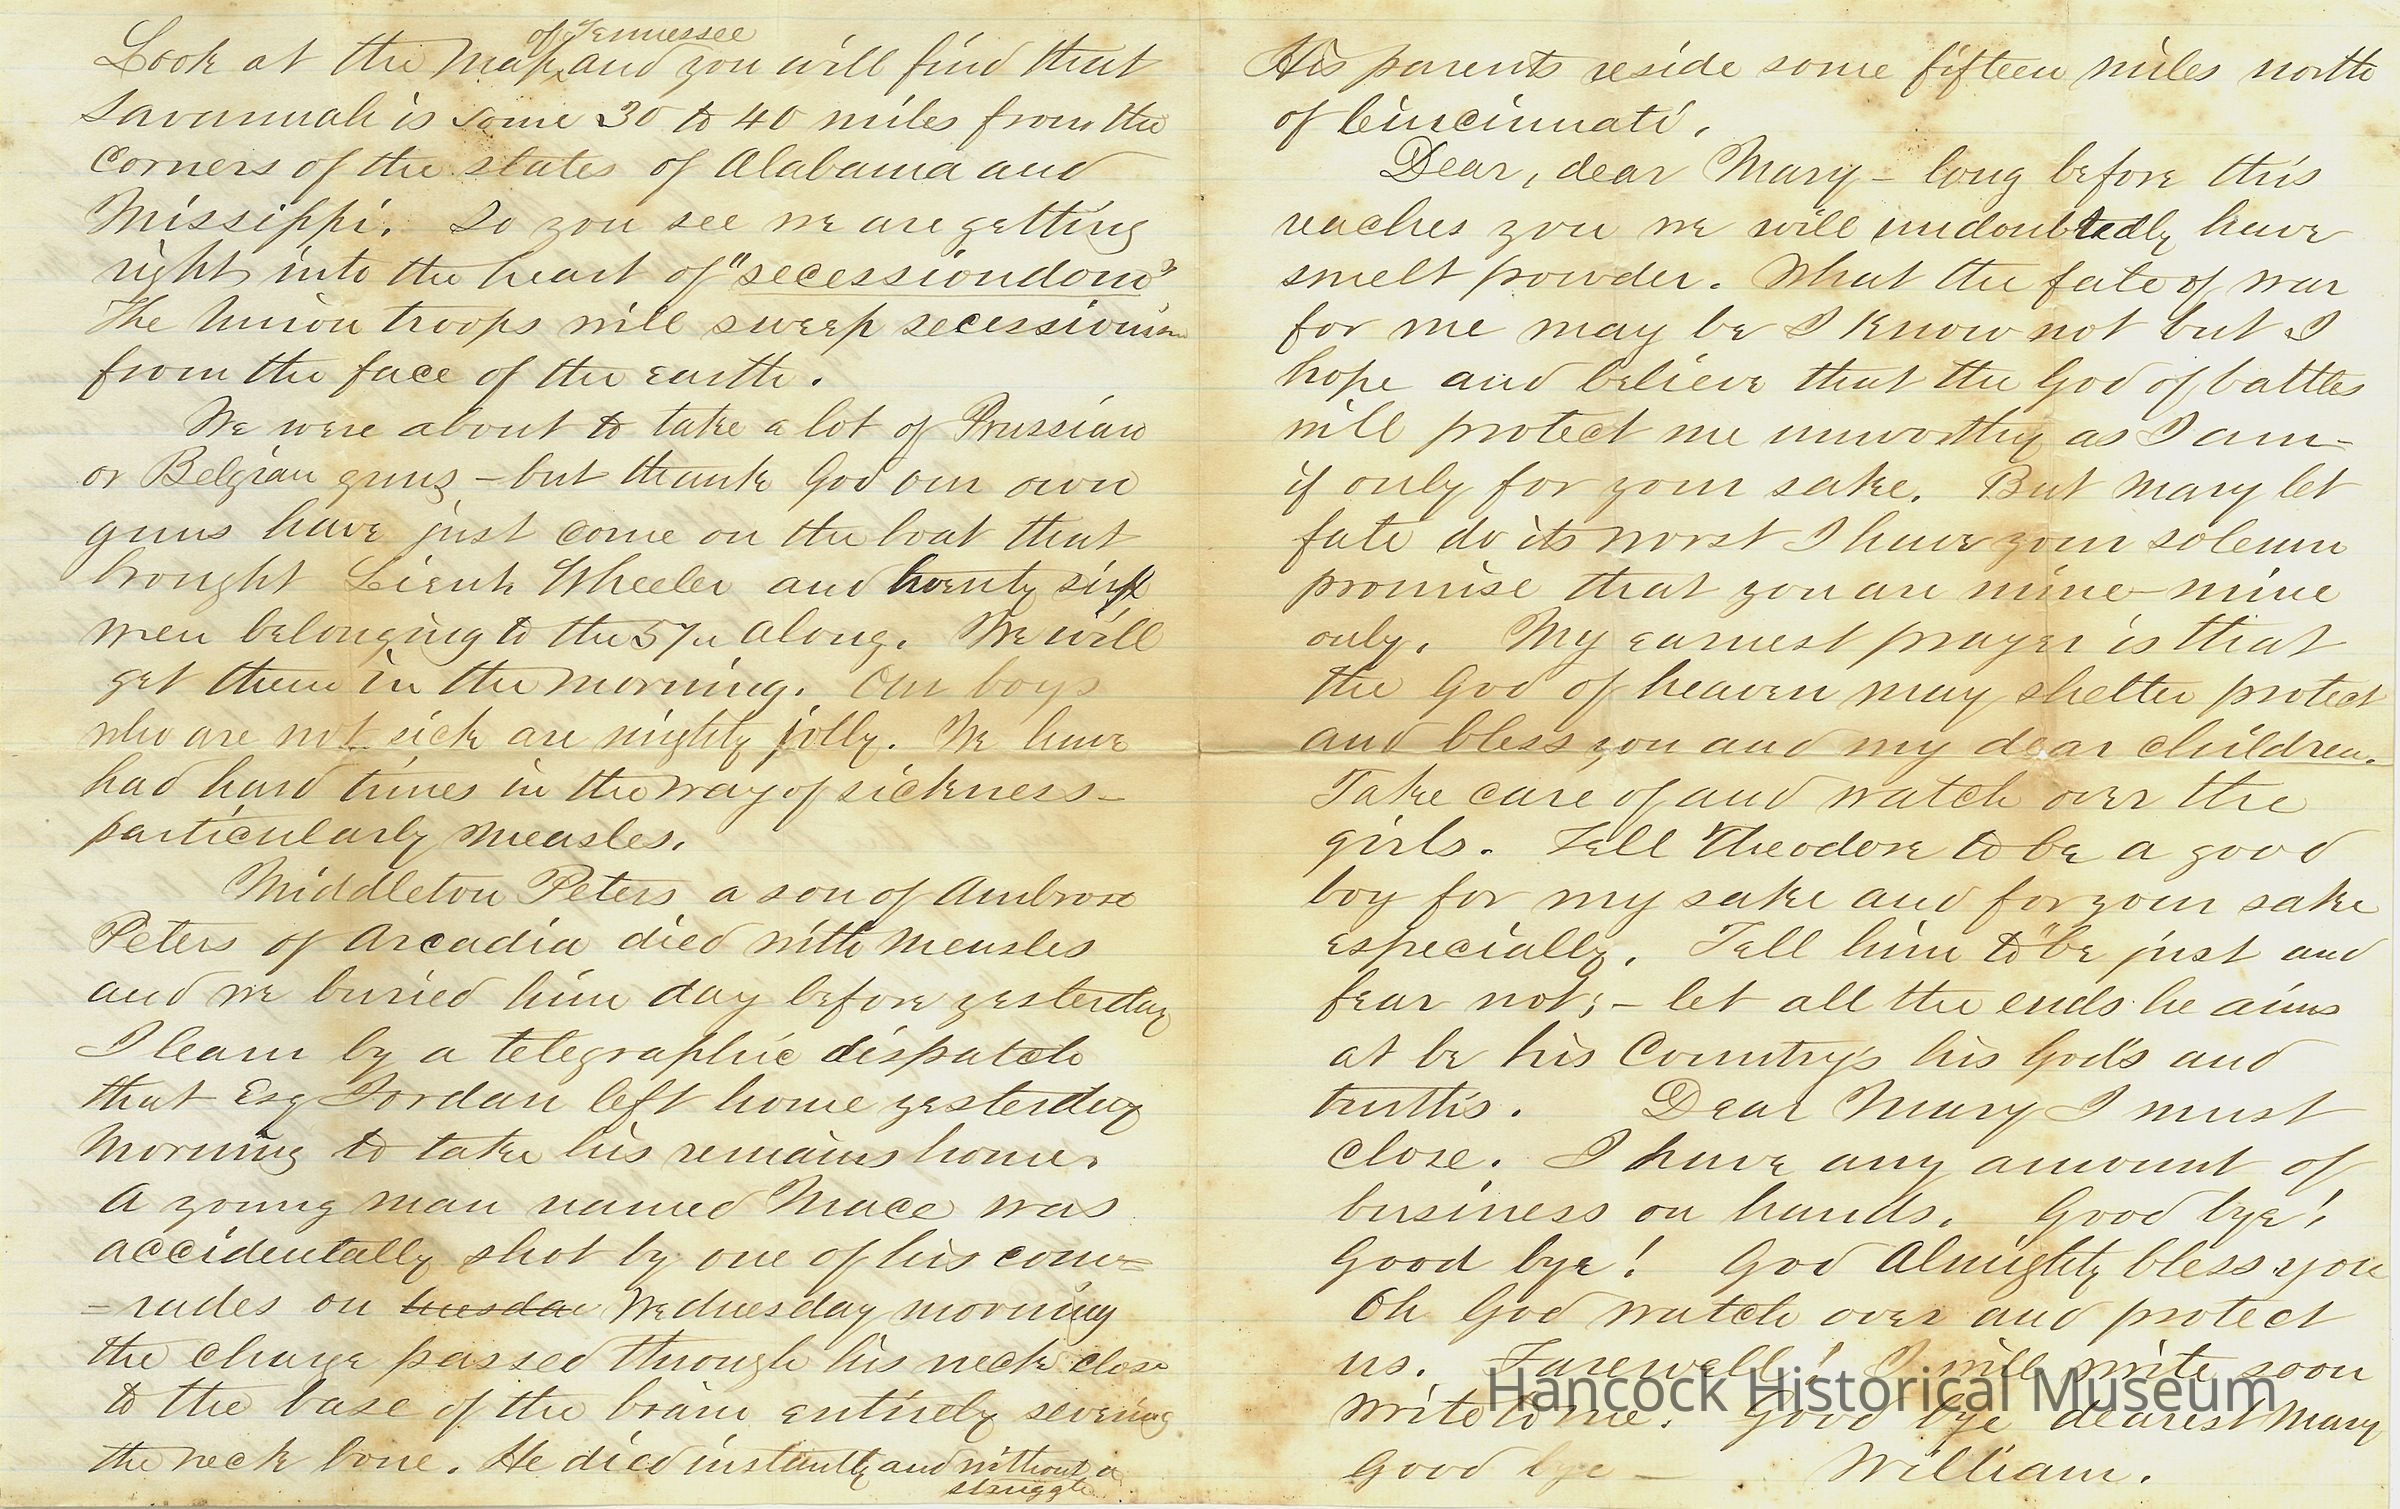 Look at the Map of Tennessee and you will find that
Savannah is some 30 to 40 miles from the
Corners of the states of Alabama and
Missippi. So you see we are getting
right into the heart of "secessiondom"
The Union troops will sweep secessionism
from the face of the earth.
We were about to take a lot of Prussian
or Belgian guns, - but thank God our own
guns have just come on the boat that
brought Lieut Wheeler and twenty six
men belonging to the 57th along. We will
get them in the morning. Our boys
who are not sick are mighty jolly. We have
had hard times in the way of sickness -
particularly Measles.
Middleton Peters a son of Ambrose
Peters of Arcadia died with Measles
and we buried him day before yesterday
I learn by a telegraphic dispatch
that Esq Jordan left home yesterday
Morning to take his remains home.
A young man named Mace was
accidentally shot by one of his com=
=rades on tuesda Wednesday morning
the charge passed through his neck close
to the base of the brain entirely severing
the neck bone. He died instantly and without a
struggle.
His parents reside some fifteen miles north
of Cincinnati.
Dear, dear Mary - long before this
reaches you we will undoubtedly have
smelt powder. What the fate of war
for me may be I know not but I
hope and believe that the God of battles
will protect me unworthy as I am -
if only for your sake. But Mary let
fate do its worst I have your solemn
promise that you are mine - mine
only. My earnest prayer is that
the God of heaven may shelter protect
and bless you and my dear children.
Take care of and watch over the
girls. Tell Theodore to be a good
boy for my sake and for your sake
especially. Tell him to "be just and
fear not; - let all the ends he aims
at be his Country's his God's and
truths. Dear Mary I must
close. I have any amount of
business on hands. Good bye!
Good bye! God Almighty bless you
Oh God watch over and protect
us. Farewell! I will write soon
Write to me. Good bye dearest Mary
Good bye - William.
Hancock Historical Museum